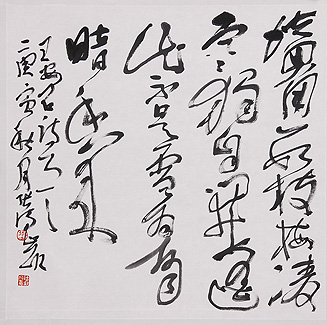 墙角数枝梅凌
寒独自开遥
知不是雪为有
暗香来
王安石诗
庚寅秋月